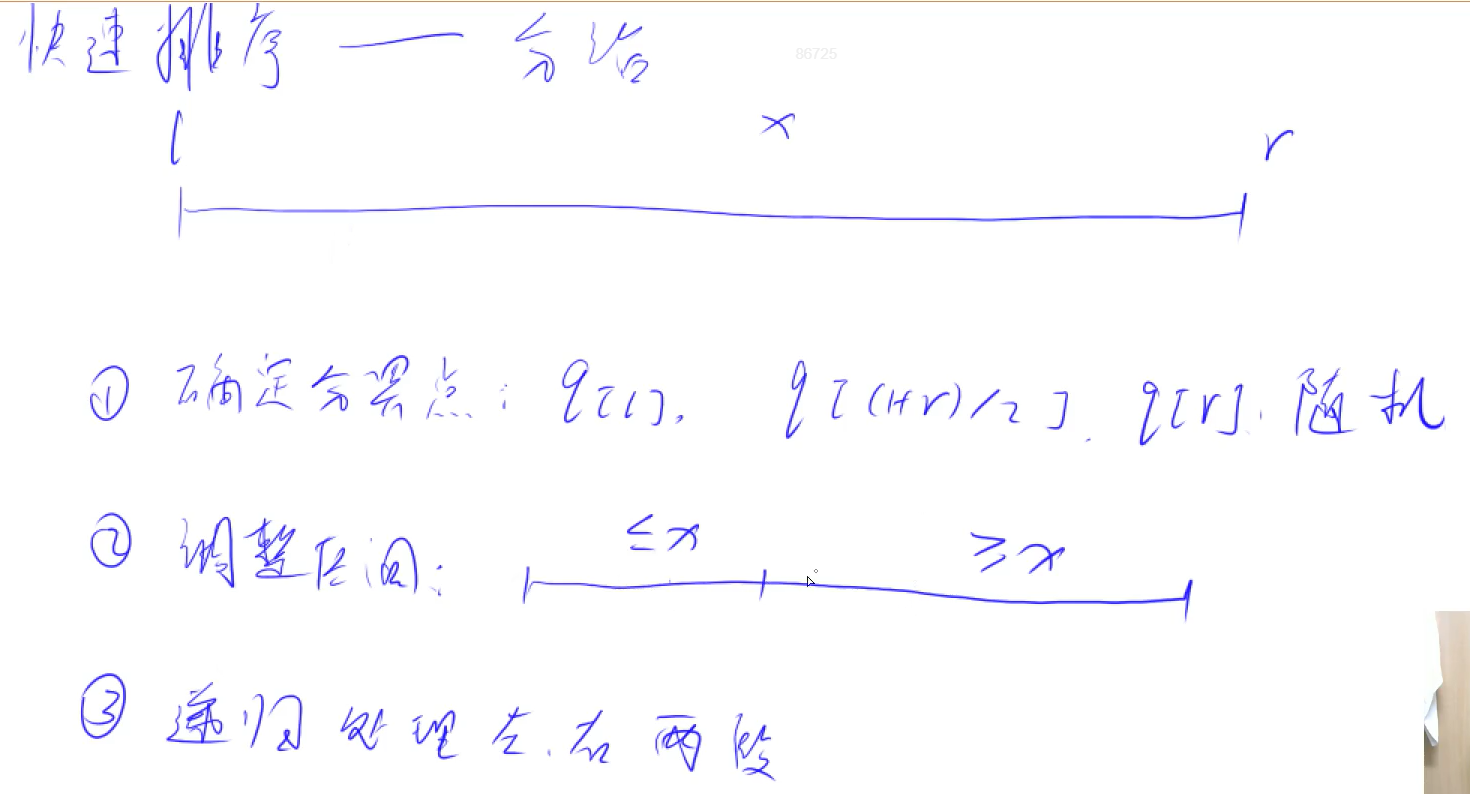 快速排序 —— 分治
86725
l x r
① 确定分界点: q[l], q[(l+r)/2], q[r], 随机
② 调整区间: ≤x ≥x
③ 递归处理左、右两段